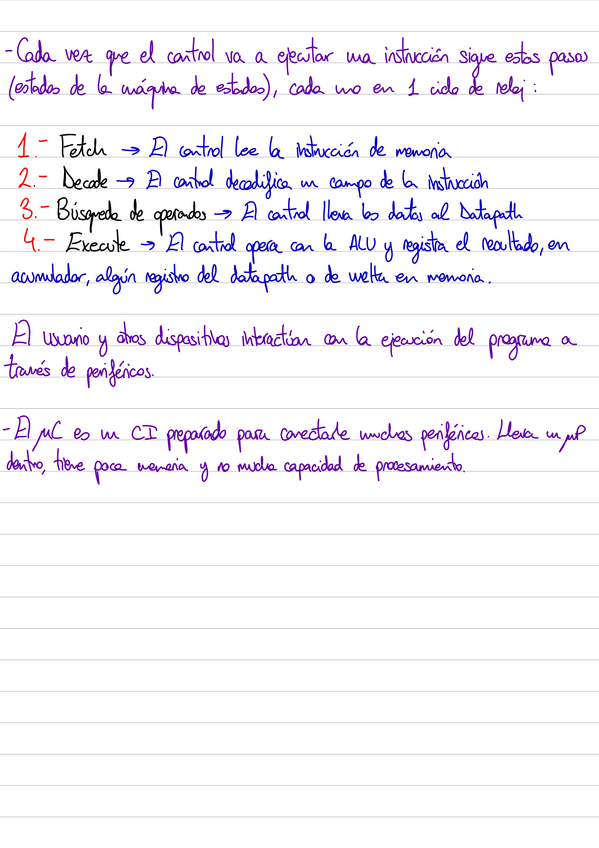 - Cada vez que el control va a ejecutar una instrucción sigue estos pasos
(estados de la máquina de estados), cada uno en 1 ciclo de reloj :
1.- Fetch → El control lee la instrucción de memoria
2.- Decode → El control decodifica un campo de la instrucción
3.- Búsqueda de operandos → El control lleva los datos al Datapath
4.- Execute → El control opera con la ALU y registra el resultado, en
acumulador, algún registro del datapath o de vuelta en memoria.
El usuario y otros dispositivos interactúan con la ejecución del programa a
través de periféricos.
- El μC es un CI preparado para conectarle muchos periféricos. Lleva un μP
dentro, tiene poca memoria y no mucha capacidad de procesamiento.